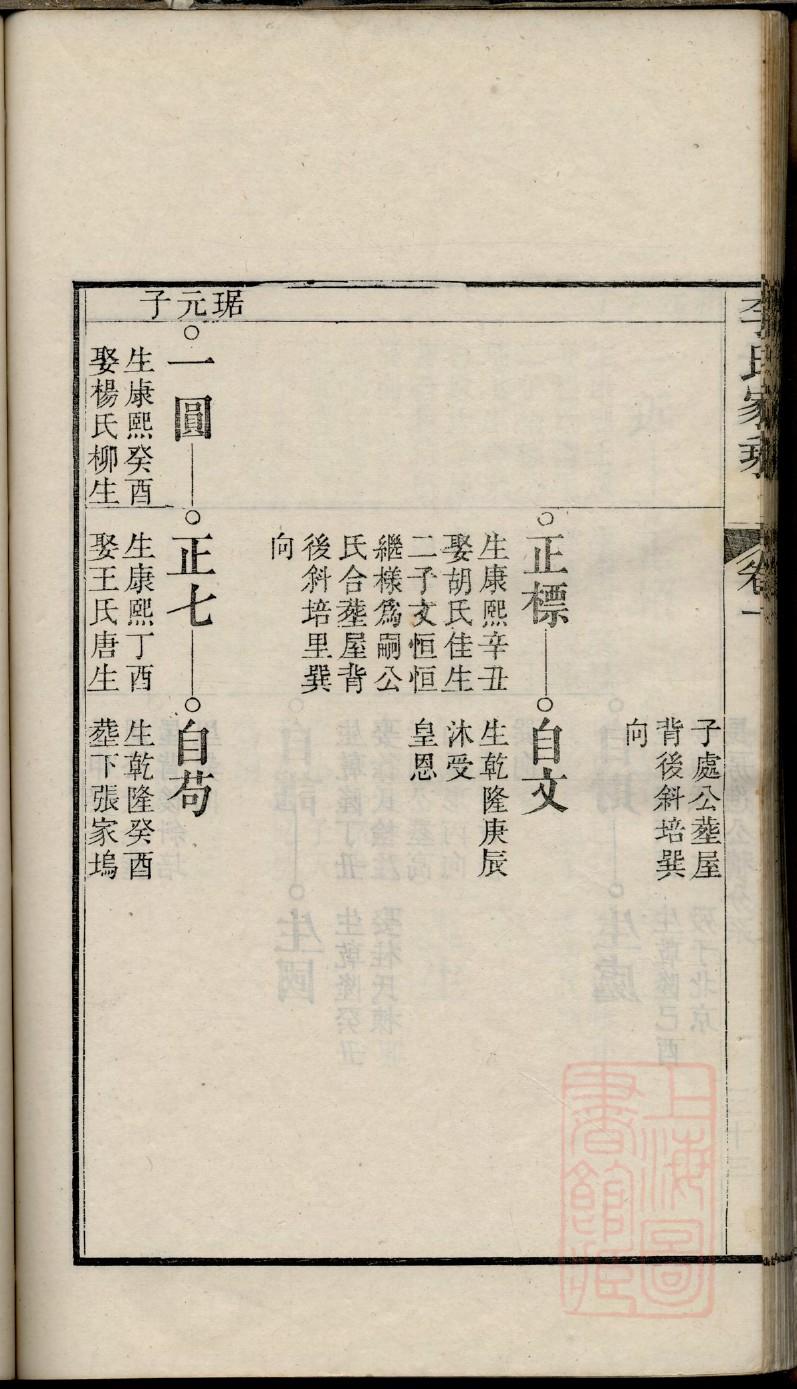 李氏家乘
卷一
子處公塟屋
背後斜培巽
向
正標
生康熙辛丑
娶胡氏佳生
二子文恒恒
繼樣爲嗣公
氏合塟屋背
後斜培里巽
向
自文
生乾隆庚辰
沐受
皇恩
琚元子
一圓
生康熙癸酉
娶楊氏柳生
正七
生康熙丁酉
娶王氏唐生
自苟
生乾隆癸酉
塟下張家塢
上海圖
書館藏